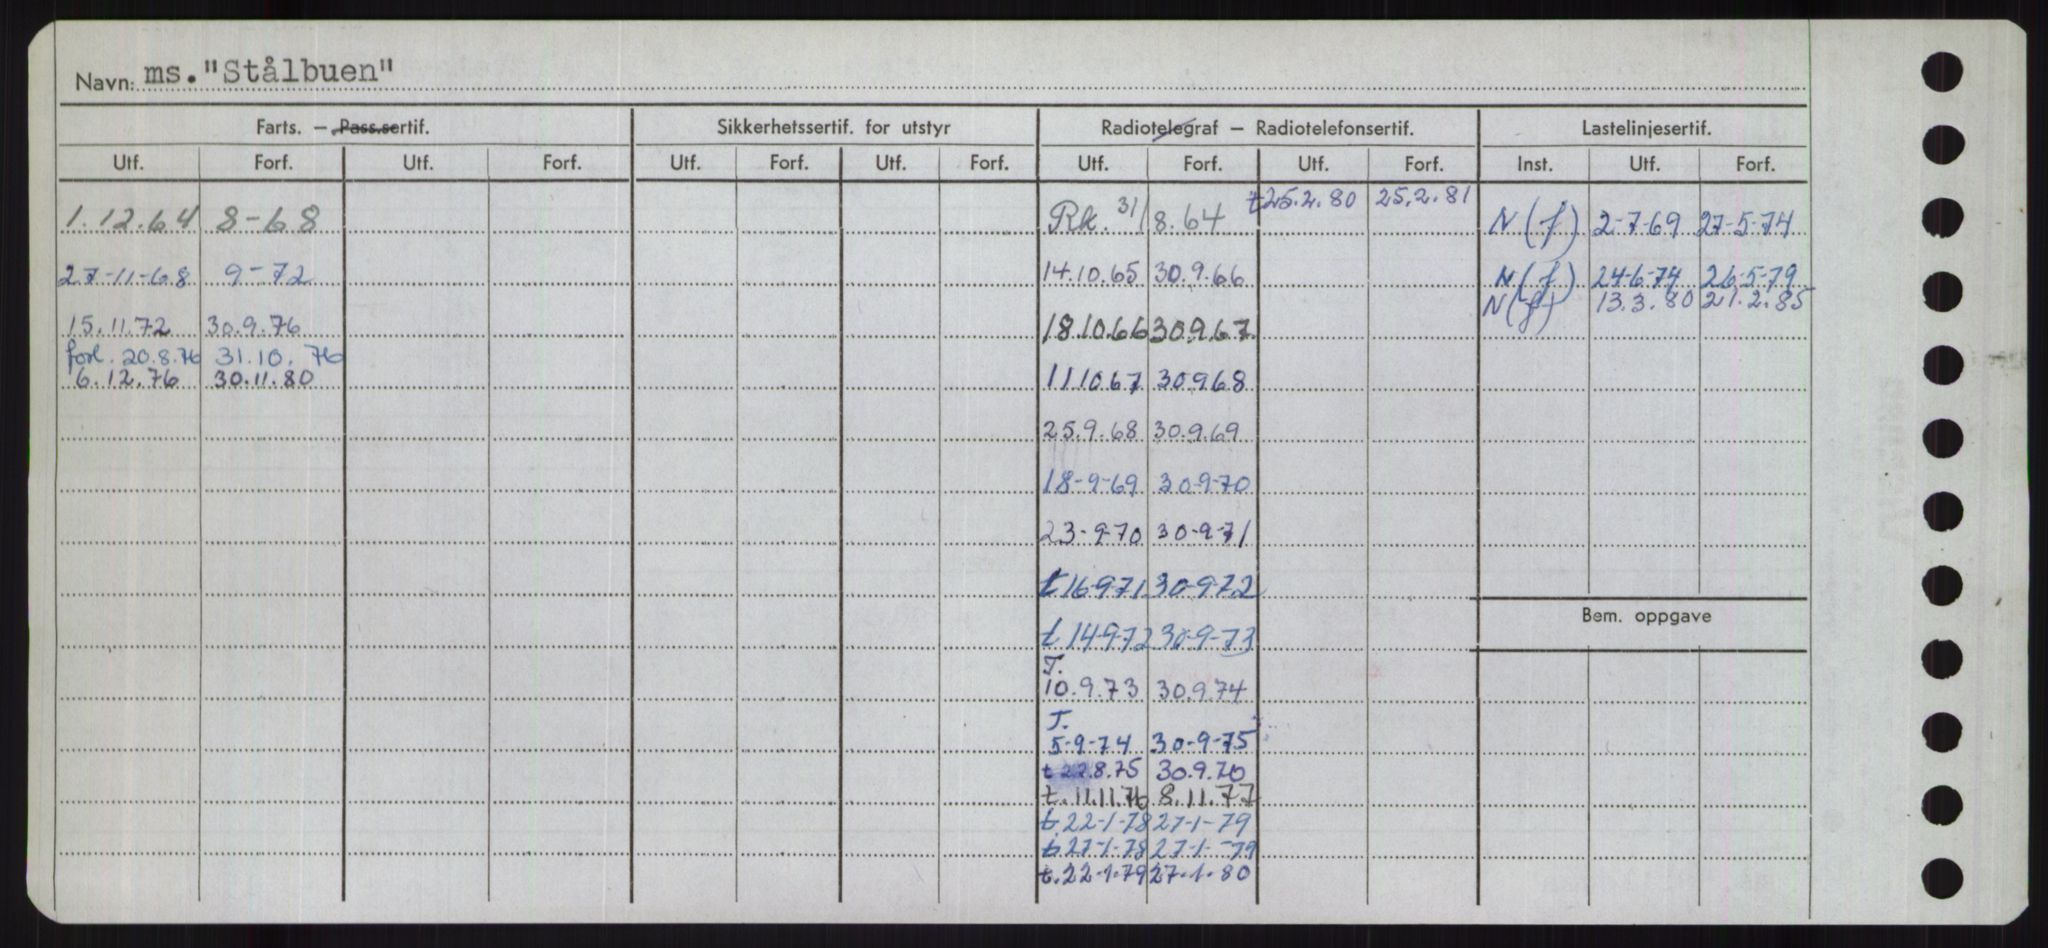 Navn: ms. "Stålbuen"
Farts. — Pass.sertif. Sikkerhetssertif. for utstyr Radiotelegraf — Radiotelefonsertif. Lastelinjesertif.
Utf. Forf. Utf. Forf. Utf. Forf. Utf. Forf. Utf. Forf. Utf. Forf. Inst. Utf. Forf.
1.12.64 8-68
27-11-68 9-72
15.11.72 30.9.76
forl. 20.8.76 31.10.76
6.12.76 30.11.80
Rk. 31/8.64
14.10.65 30.9.66
18.10.66 30.9.67
11.10.67 30.9.68
25.9.68 30.9.69
18-9-69 30-9-70
23-9-70 30-9-71
t 16-9-71 30-9-72
t 14-9-72 30-9-73
T.
10.9.73 30.9.74
T.
5-9-74 30-9-75
t 22.8.75 30.9.76
t. 11.11.76 8.11.77
t. 22-1-78 27-1-79
t 27-1-78 27-1-79
t. 22-1-79 27-1-80
t 25.2.80 25.2.81
N(f) 2-7-69 27-5-74
N(f) 24-6-74 26-5-79
N(f) 13.3.80 21.2.85
Bem. oppgave